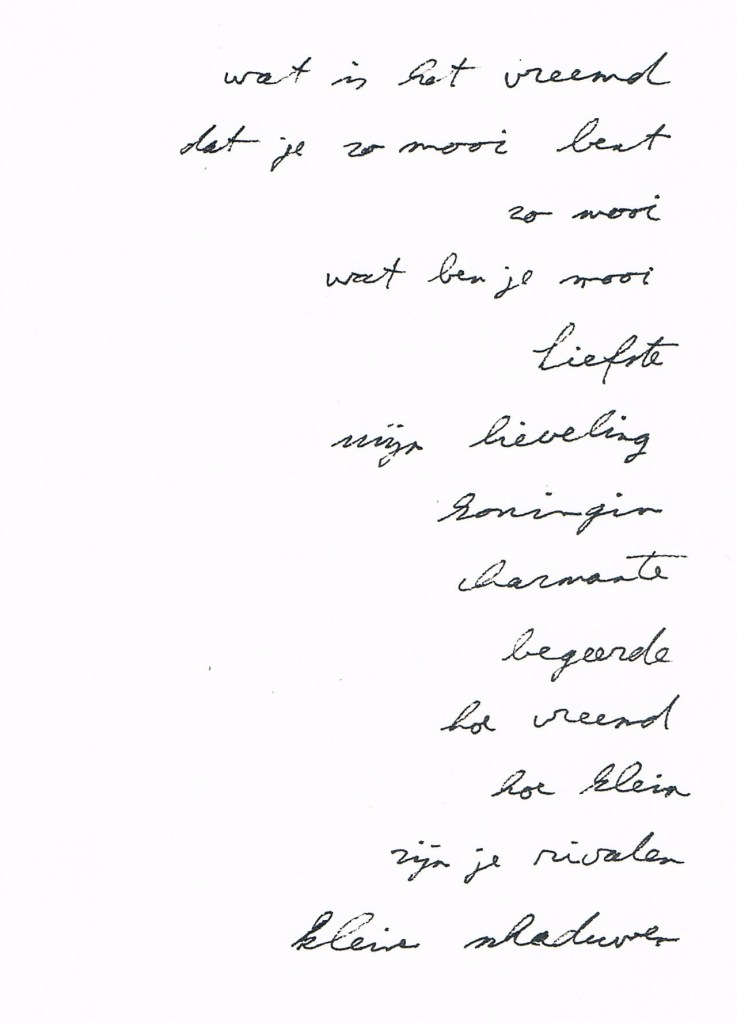 wat is het vreemd
dat je zo mooi bent
zo mooi
wat ben je mooi
liefste
mijn lieveling
koningin
charmante
begeerde
hoe vreemd
hoe klein
zijn je rivalen
kleine schaduwen